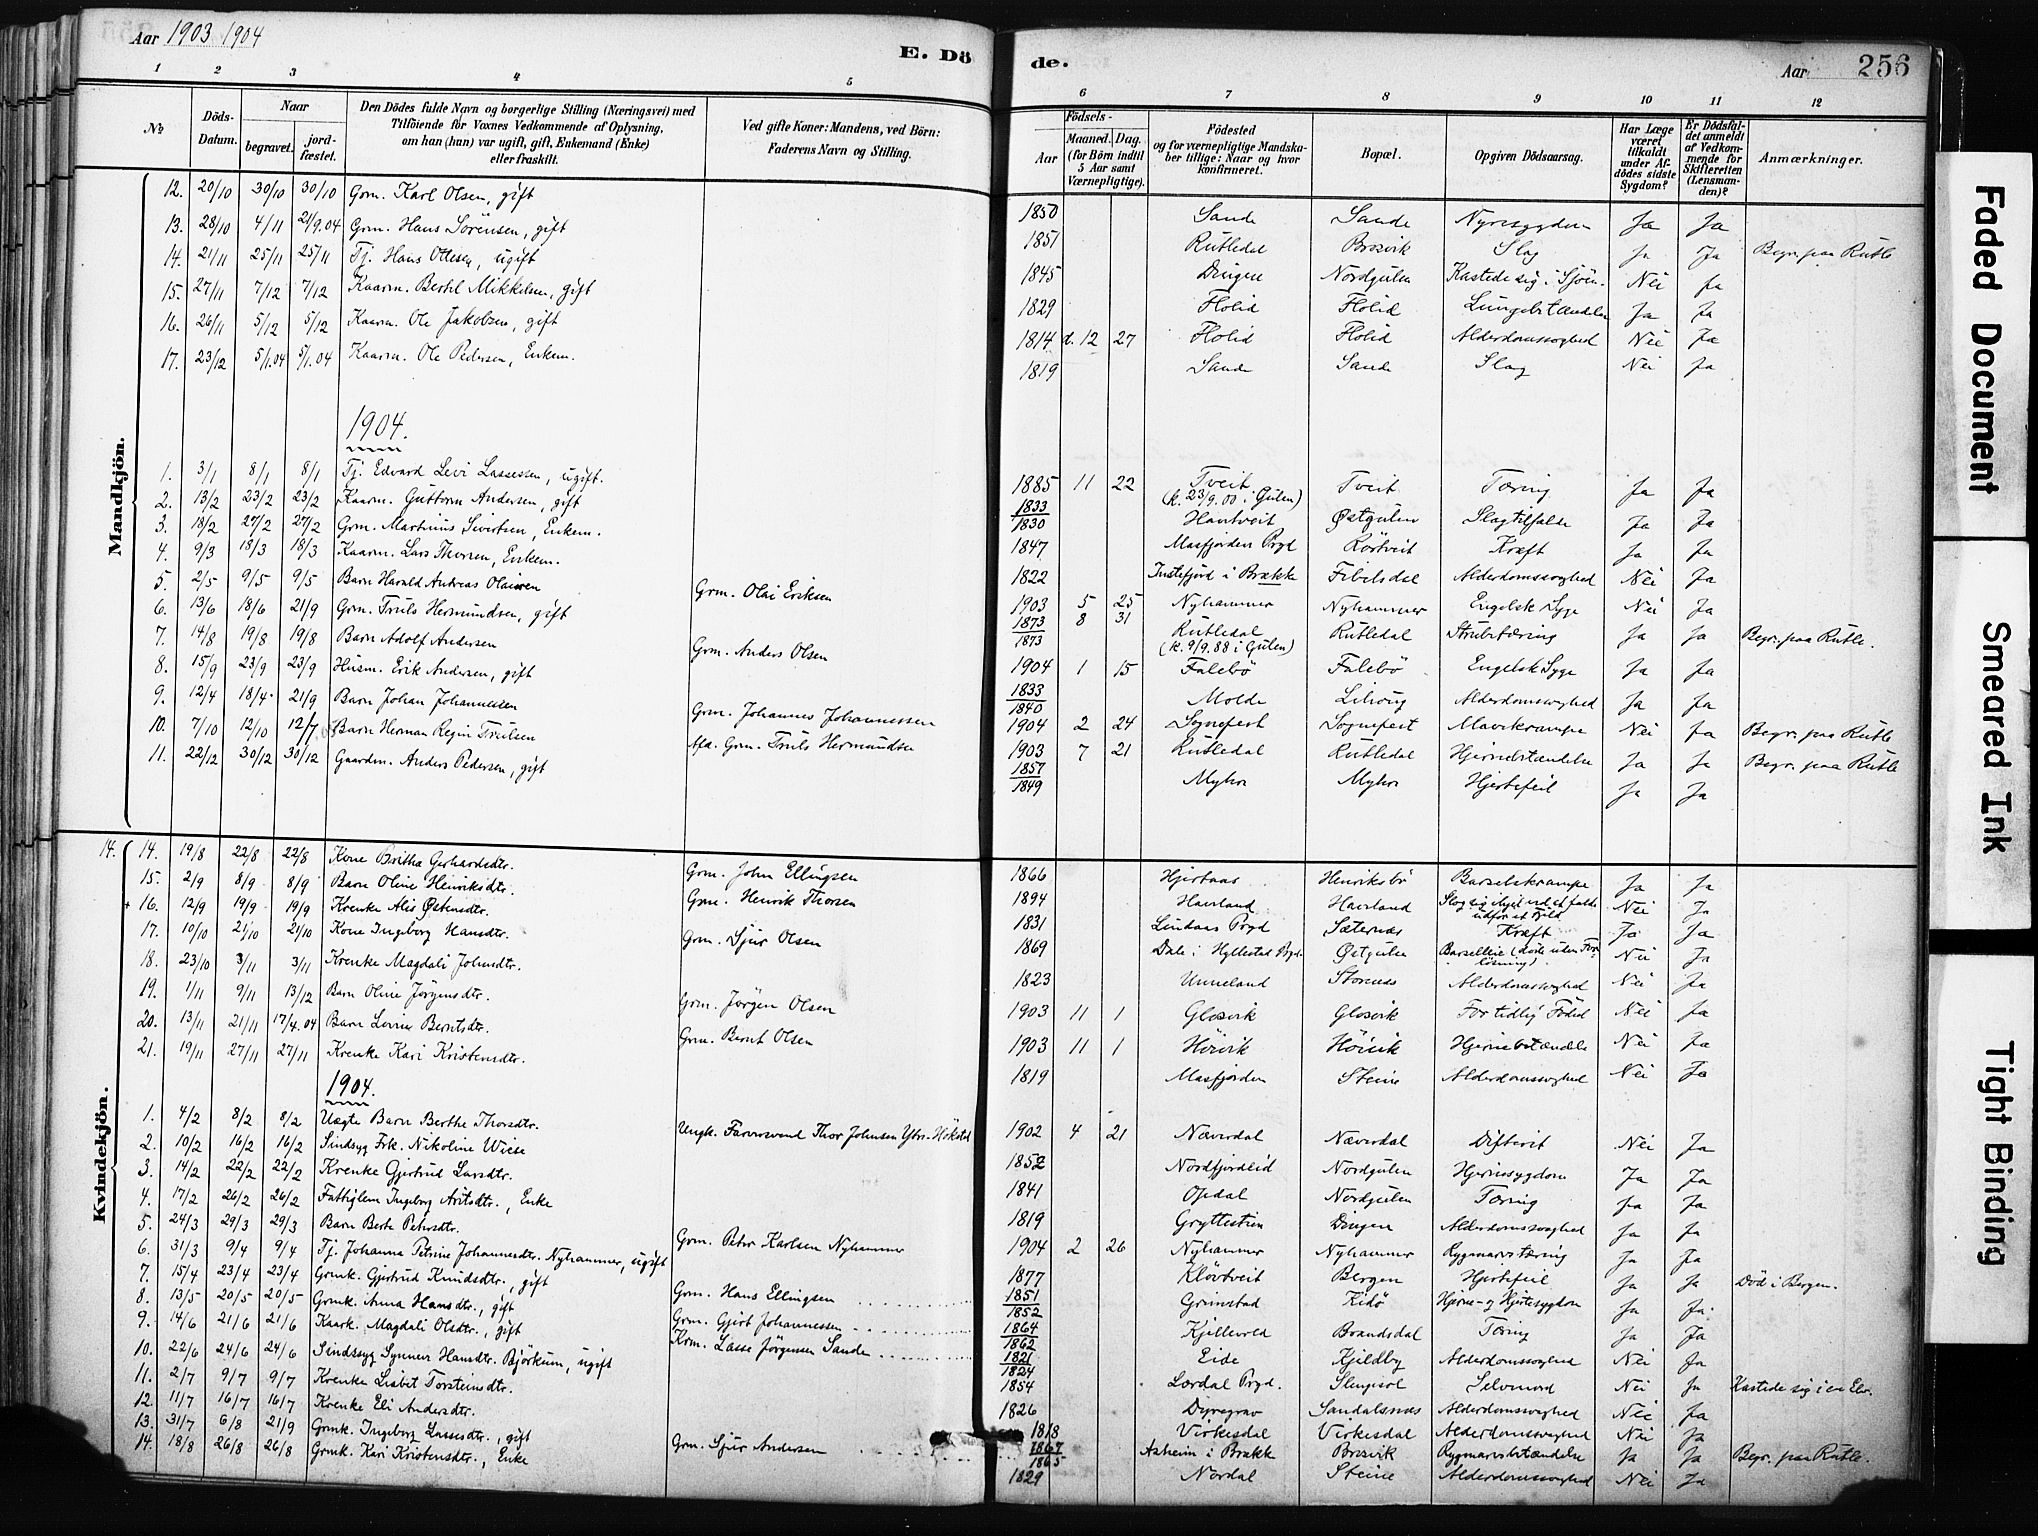 Aar 1903 1904
E. Dö
de.
Aar
256
1 2 3 4 5 6 7 8 9 10 11 12
№
Döds-Datum.
Naar
begravet.
jordfæstet.
Den Dödes fulde Navn og borgerlige Stilling (Næringsvei) med
Tilföiende for Voxnes Vedkommende af Oplysning,
om han (hun) var ugift, gift, Enkemand (Enke)
eller fraskilt.
Ved gifte Koner: Mandens, ved Börn:
Faderens Navn og Stilling.
Födsels-
Aar
Maaned. Dag.
(for Börn indtil
5 Aar samt
Værnepligtige).
Födested
og for værnepligtige Mandskaber tillige: Naar og hvor
konfirmeret.
Bopæl.
Opgiven Dödsaarsag.
Har Læge
været
tilkaldt
under Afdödes sidste
Sygdom?
Er Dödsfaldet anmeldt
af Vedkommende for
Skifteretten
(Lensmanden)?
Anmærkninger.
Mandkjön.
12. 20/10 30/10 30/10 Grm. Karl Olsen, gift 1850 Sande Sande Nyresygdom Ja Ja
13. 28/10 4/11 21/9.04 Grm. Hans Sörensen, gift 1851 Rutledal Brosvik Slag Ja Ja Begr. paa Rutle
14. 21/11 25/11 25/11 Tj. Hans Ottesen, ugift 1845 Dingen Nordgulen Kastede sig i Sjöen. Nei Ja
15. 27/11 7/12 7/12 Kaarm. Bertil Mikkelsen, gift 1829 Flolid Flolid Lungebetændelse Ja Ja
16. 26/11 5/12 5/12 Kaarm. Ole Jakobsen, gift 1814 d. 12 27 Flolid Flolid Alderdomssvaghed Nei Ja
17. 23/12 5/1.04 5/1.04 Kaarm. Ole Pedersen, Enkem. 1819 Sande Sande Slag Nei Ja
1904.
1. 3/1 8/1 8/1 Tj. Edvard Levi Lassessen, ugift. 1885 11 22 Tveit (k. 23/9.00 i Gulen) Tveit Tæring Ja Ja
2. 13/2 23/2 23/2 Kaarm. Guttorm Andersen, gift 1833 1830 Hantveit Østgulen Slagtilfælde Ja Ja
3. 18/2 27/2 27/2 Grm. Martinus Sivertsen, Enkem. 1847 Masfjorden Prgd Rörtveit Kræft Ja Ja
4. 9/3 18/3 18/3 Kaarm. Lars Thorsen, Enkem. 1822 Instefjord i Brække Fibelsdal Alderdomssvaghed Nei Ja
5. 2/5 9/5 9/5 Barn Harald Andreas Olaisen Grm. Olai Eriksen 1903 5 25 Nyhammer Nyhammer Engelsk Syge Nei Ja
6. 13/6 18/6 21/9 Grm. Truls Hermundsen, gift 1873 1873 8 31 Rutledal (k. 9/9.88 i Gulen) Rutledal Strubetæring Ja Ja Begr. paa Rutle.
7. 14/8 19/8 19/8 Barn Adolf Andersen Grm. Anders Olsen 1904 1 15 Falebö Falebö Engelsk Syge Ja Ja
8. 15/9 23/9 23/9 Husm. Erik Andersen, gift 1833 1840 Molde Lihoug Alderdomssvaghed Ja Ja
9. 12/4 18/4 21/9 Barn Johan Johannessen Grm. Johannes Johannessen 1904 2 24 Sognefest Sognefest Mavekrampe Nei Ja Begr. paa Rutle
10. 7/10 12/10 12/7 Barn Herman Regin Trulsen Afd. Grm. Truls Hermundsen 1903 7 21 Rutledal Rutledal Hjernebetændelse Ja Ja Begr. paa Rutle
11. 22/12 30/12 30/12 Gaardm. Anders Pedersen, gift 1857 1849 Myhre Myhre Hjertefeil Ja Ja
Kvindekjön.
14. 14. 19/8 22/8 22/8 Kone Britha Gerhardsdtr. Grm. John Ellingsen 1866 Hjertaas Henriksbö Barselskrampe Ja Ja
15. 2/9 8/9 8/9 Barn Oline Henriksdtr. Grm. Henrik Thorsen 1894 Haveland Haveland Slog sig ihjel ved et fald udfor et Fjeld Nei Ja
+ 16. 12/9 19/9 19/9 Krenke Alis Østensdtr. 1831 Lindaas Prgd Sæternæs Kræft Ja Ja
17. 10/10 21/10 21/10 Kone Ingeborg Hansdtr. Grm. Sjur Olsen 1869 Dale i Hyllestad Prgd. Østgulen Barselleie (döde uden Forlösning) Nei Ja
18. 23/10 3/11 3/11 Krenke Magdali Johnsdtr. 1823 Unneland Storenes Alderdomssvaghed Nei Ja
19. 1/11 9/11 13/12 Barn Oline Jörgensdtr. Grm. Jörgen Olsen 1903 11 1 Glosvik Glosvik For tidlig Födsel Nei Ja
20. 13/11 21/11 17/4.04 Barn Lovise Berntsdtr. Grm. Bernt Olsen 1903 11 1 Höivik Höivik Hjernebetændelse Nei Ja
21. 19/11 27/11 27/11 Krenke Kari Kristensdtr. 1819 Masfjorden Steine Alderdomssvaghed Nei Ja
1904.
1. 4/2 8/2 8/2 Uægte Barn Berthe Thorsdtr. Ungk. Farversvend Thor Johnsen Ytre-Hökstd 1902 4 21 Næverdal Næverdal Difterit Nei Ja
2. 10/2 16/2 16/2 Sindsyg Frk. Nikoline Wiese 1852 Nordfjordeid Nordgulen Hjernesygdom Ja Ja
3. 14/2 22/2 22/2 Krenke Gjertrud Larsdtr. 1841 Opdal Nordgulen Tæring Ja Ja
4. 17/2 26/2 26/2 Fattiglem Ingeborg Antsdtr., Enke 1819 Gryttestien Dingen Alderdomssvaghed Ja Ja
5. 24/3 29/3 29/3 Barn Berte Petersdtr. Grm. Peter Karlsen Nyhammer 1904 2 26 Nyhammer Nyhammer Rygmarvstæring Ja Ja
6. 31/3 9/4 9/4 Tj. Johanna Petrine Johannesdtr. Nyhammer, ugift 1877 Klövtveit Bergen Hjertefeil Ja Ja Död i Bergen.
7. 15/4 23/4 23/4 Grmk. Gjertrud Knudsdtr., gift Grm. Hans Ellingsen 1851 1852 Grimstad Kidö Hjerne- og Hjertesygdom Ja Ja
8. 13/5 20/5 20/5 Grmk. Anna Hansdtr., gift Grm. Gjert Johannessen 1864 1862 Kjellevold Brandsdal Tæring Ja Ja
9. 14/6 21/6 21/6 Kaark. Magdali Olsdtr., gift Krm. Lasse Jörgensen Sande 1821 1824 Eide Kjeldby Alderdomssvaghed Nei Ja
10. 22/6 24/6 24/6 Sindssyg Synneve Hansdtr. Björkum, ugift 1854 Lærdal Prgd. Slengesol Selvmord Nei Ja Kastede sig i en Elv.
11. 2/7 9/7 9/7 Krenke Lisbet Torsteinsdtr. 1826 Dyregrav Sandalsnæs Alderdomssvaghed Nei Ja
12. 11/7 16/7 16/7 Krenke Eli Andersdtr. 1818 Virkesdal Virkesdal Alderdomssvaghed Nei Ja
13. 31/7 6/8 21/9 Grmk. Ingeborg Lassesdtr., gift Grm. Sjur Andersen 1867 1865 Asheim i Brække Brosvik Rygmarvsbetændelse Ja Ja Begr. paa Rutle.
14. 18/8 26/8 26/8 Grmk. Kari Kristensdtr., Enke 1829 Nordal Steine Alderdomssvaghed Nei Ja
Faded Document
Smeared Ink
Tight Binding